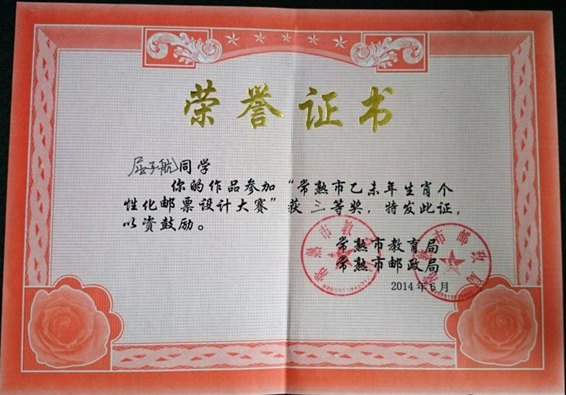 荣誉证书
屈子航同学
你的作品参加“常熟市乙未年生肖个
性化邮票设计大赛”获 三等奖，特发此证，
以资鼓励。
常熟市教育局
常熟市邮政局
2014年6月